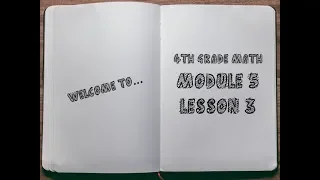 WELCOME TO...
4TH GRADE MATH
MODULE 5
LESSON 3